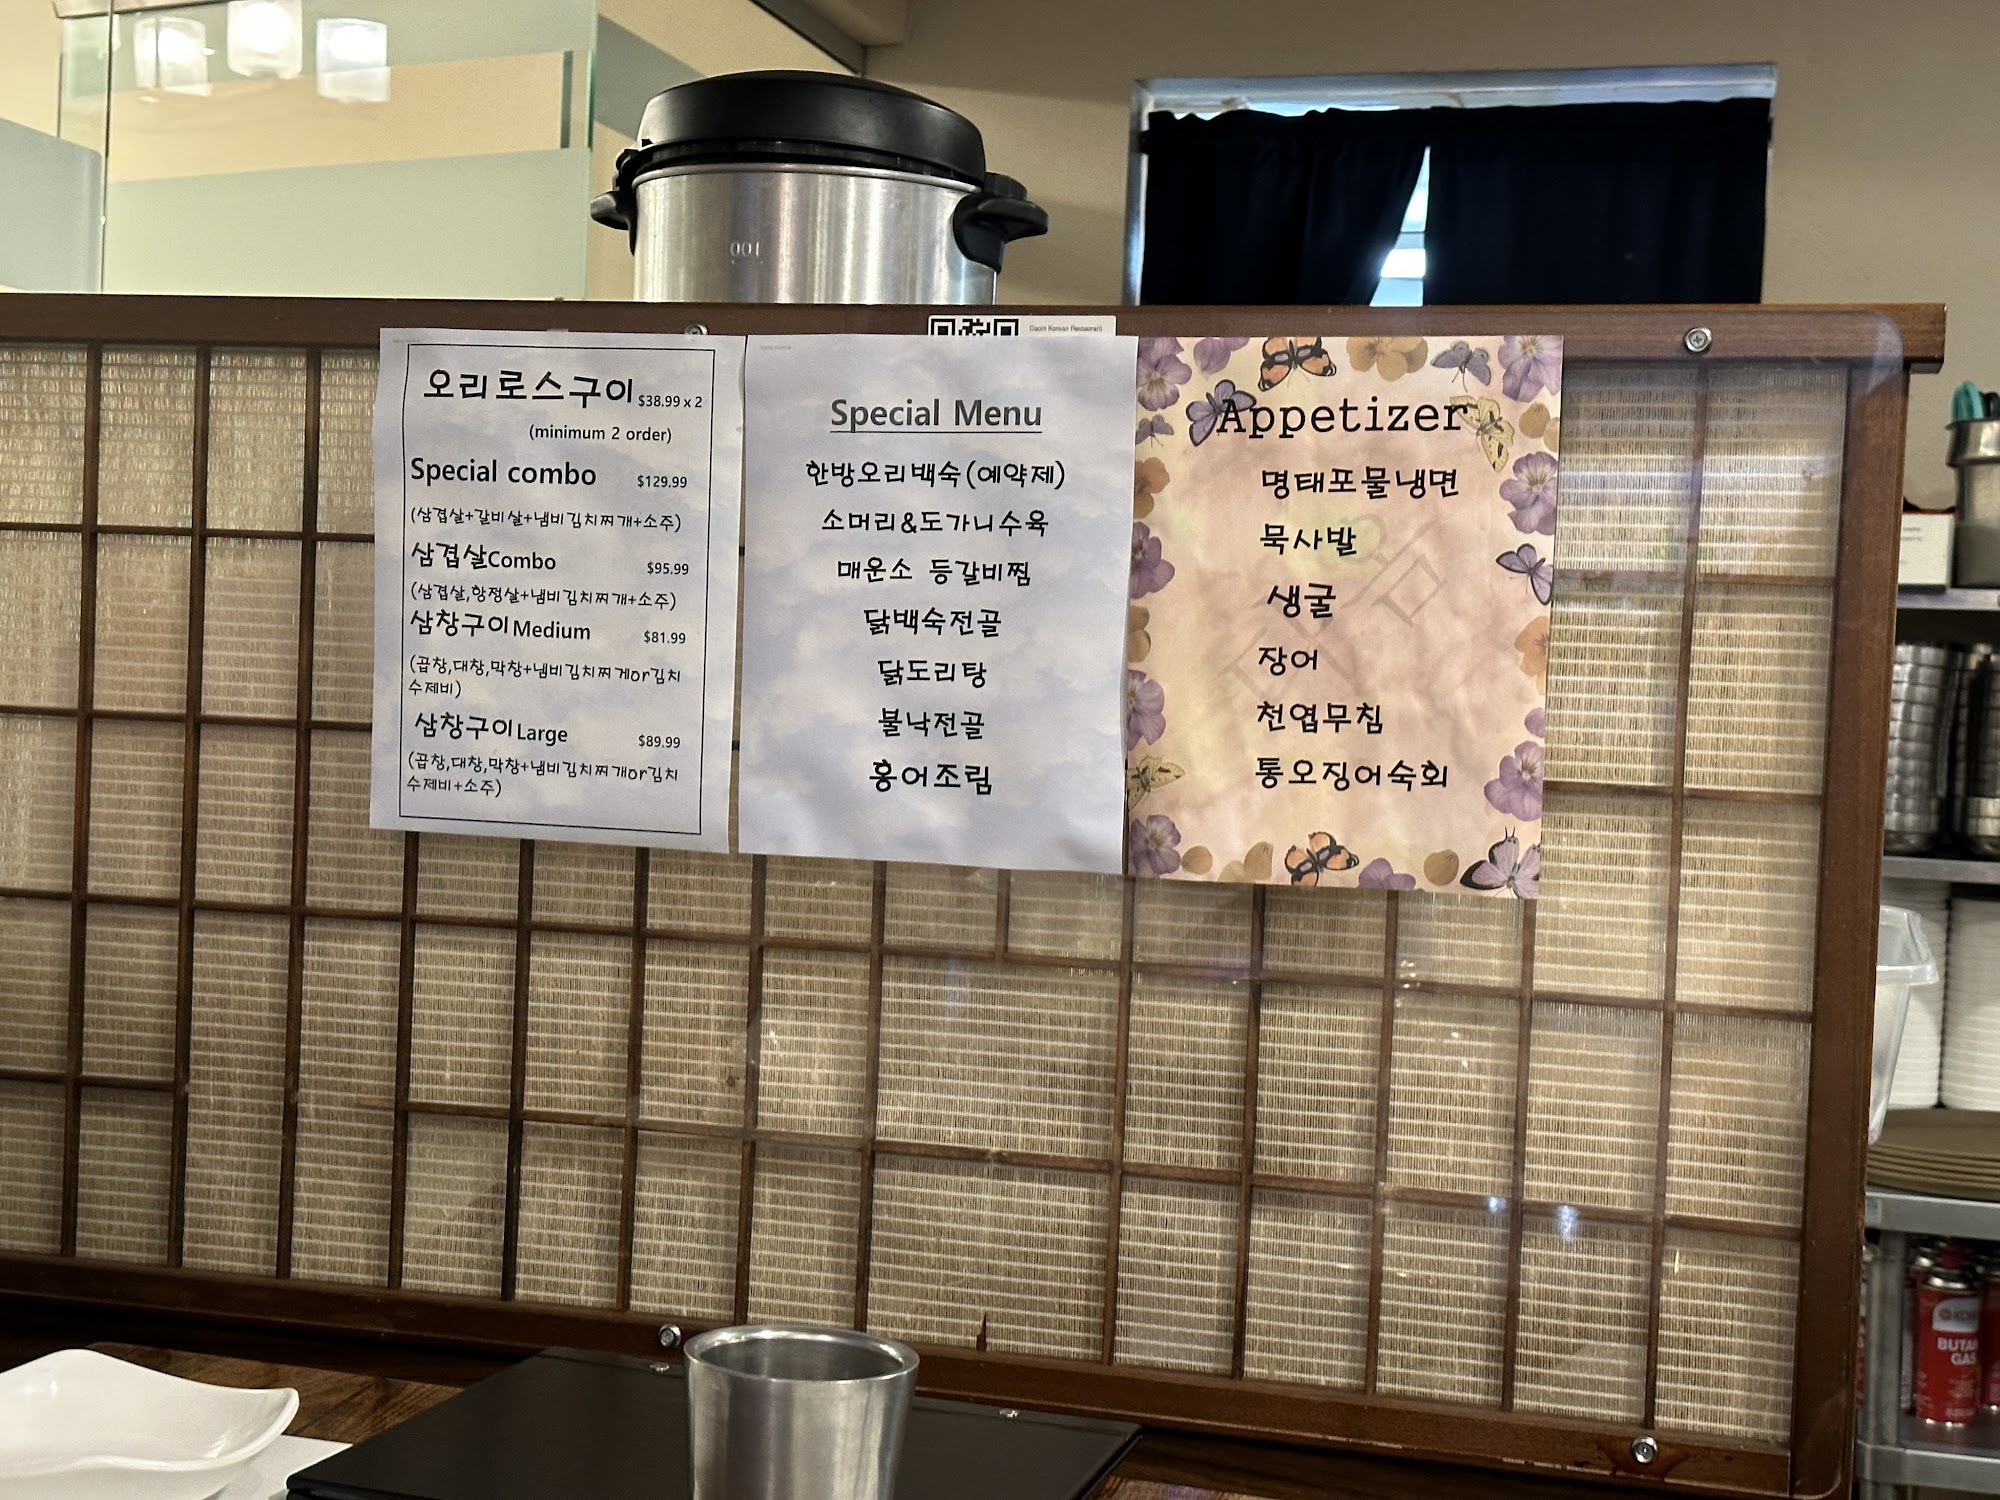 001
Daom Korean Restaurant
오리로스구이 $38.99 x 2
(minimum 2 order)
Special combo $129.99
(삼겹살+갈비살+냄비김치찌개+소주)
삼겹살Combo $95.99
(삼겹살,항정살+냄비김치찌개+소주)
삼창구이Medium $81.99
(곱창,대창,막창+냄비김치찌게or김치
수제비)
삼창구이Large $89.99
(곱창,대창,막창+냄비김치찌개or김치
수제비+소주)
Special Menu
한방오리백숙(예약제)
소머리&도가니수육
매운소 등갈비찜
닭백숙전골
닭도리탕
불낙전골
홍어조림
Appetizer
명태포물냉면
묵사발
생굴
장어
천엽무침
통오징어숙회
BUTA
GAS